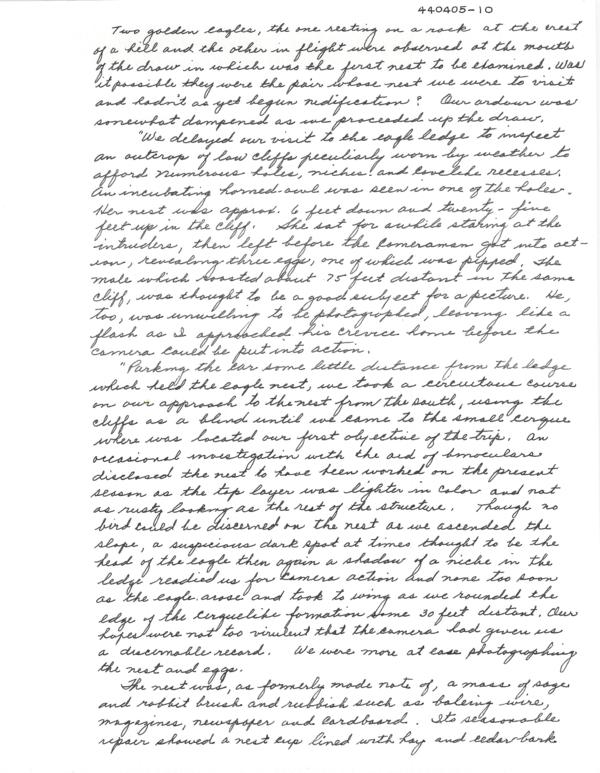 440405-10
Two golden eagles, the one resting on a rock at the crest
of a hill and the other in flight were observed at the mouth
of the draw in which was the first nest to be examined. Was
it possible they were the pair whose nest we were to visit
and hadn't as yet begun nidification? Our ardour was
somewhat dampened as we proceeded up the draw.
"We delayed our visit to the eagle ledge to inspect
an outcrop of low cliffs peculiarly worn by weather to
afford numerous holes, niches and covelike recesses.
An incubating horned-owl was seen in one of the holes.
Her nest was approx. 6 feet down and twenty-five
feet up in the cliff. She sat for awhile staring at the
intruders, then left before the cameraman got into act-
ion, revealing three eggs, one of which was pipped. The
male which roosted about 75 feet distant in the same
cliff, was thought to be a good subject for a picture. He,
too, was unwilling to be photographed, leaving like a
flash as I approached his crevice home before the
camera could be put into action.
"Parking the car some little distance from the ledge
which held the eagle nest, we took a circuitous course
on our approach to the nest from the south, using the
cliffs as a blind until we came to the small cirque
where was located our first objective of the trip. An
occasional investigation with the aid of binoculars
disclosed the nest to have been worked on the present
season as the top layer was lighter in color and not
as rusty looking as the rest of the structure. Though no
bird could be discerned on the nest as we ascended the
slope, a suspicious dark spot at times thought to be the
head of the eagle then again a shadow of a niche in the
ledge readied us for camera action and none too soon
as the eagle arose and took to wing as we rounded the
edge of the cirquelike formation some 30 feet distant. Our
hopes were not too virulent that the camera had given us
a discernable record. We were more at ease photographing
the nest and eggs.
The nest was, as formerly made note of, a mass of sage
and rabbit brush and rubbish such as baleing wire,
magazines, newspaper and cardboard. Its seasonable
repair showed a nest cup lined with hay and cedar-bark